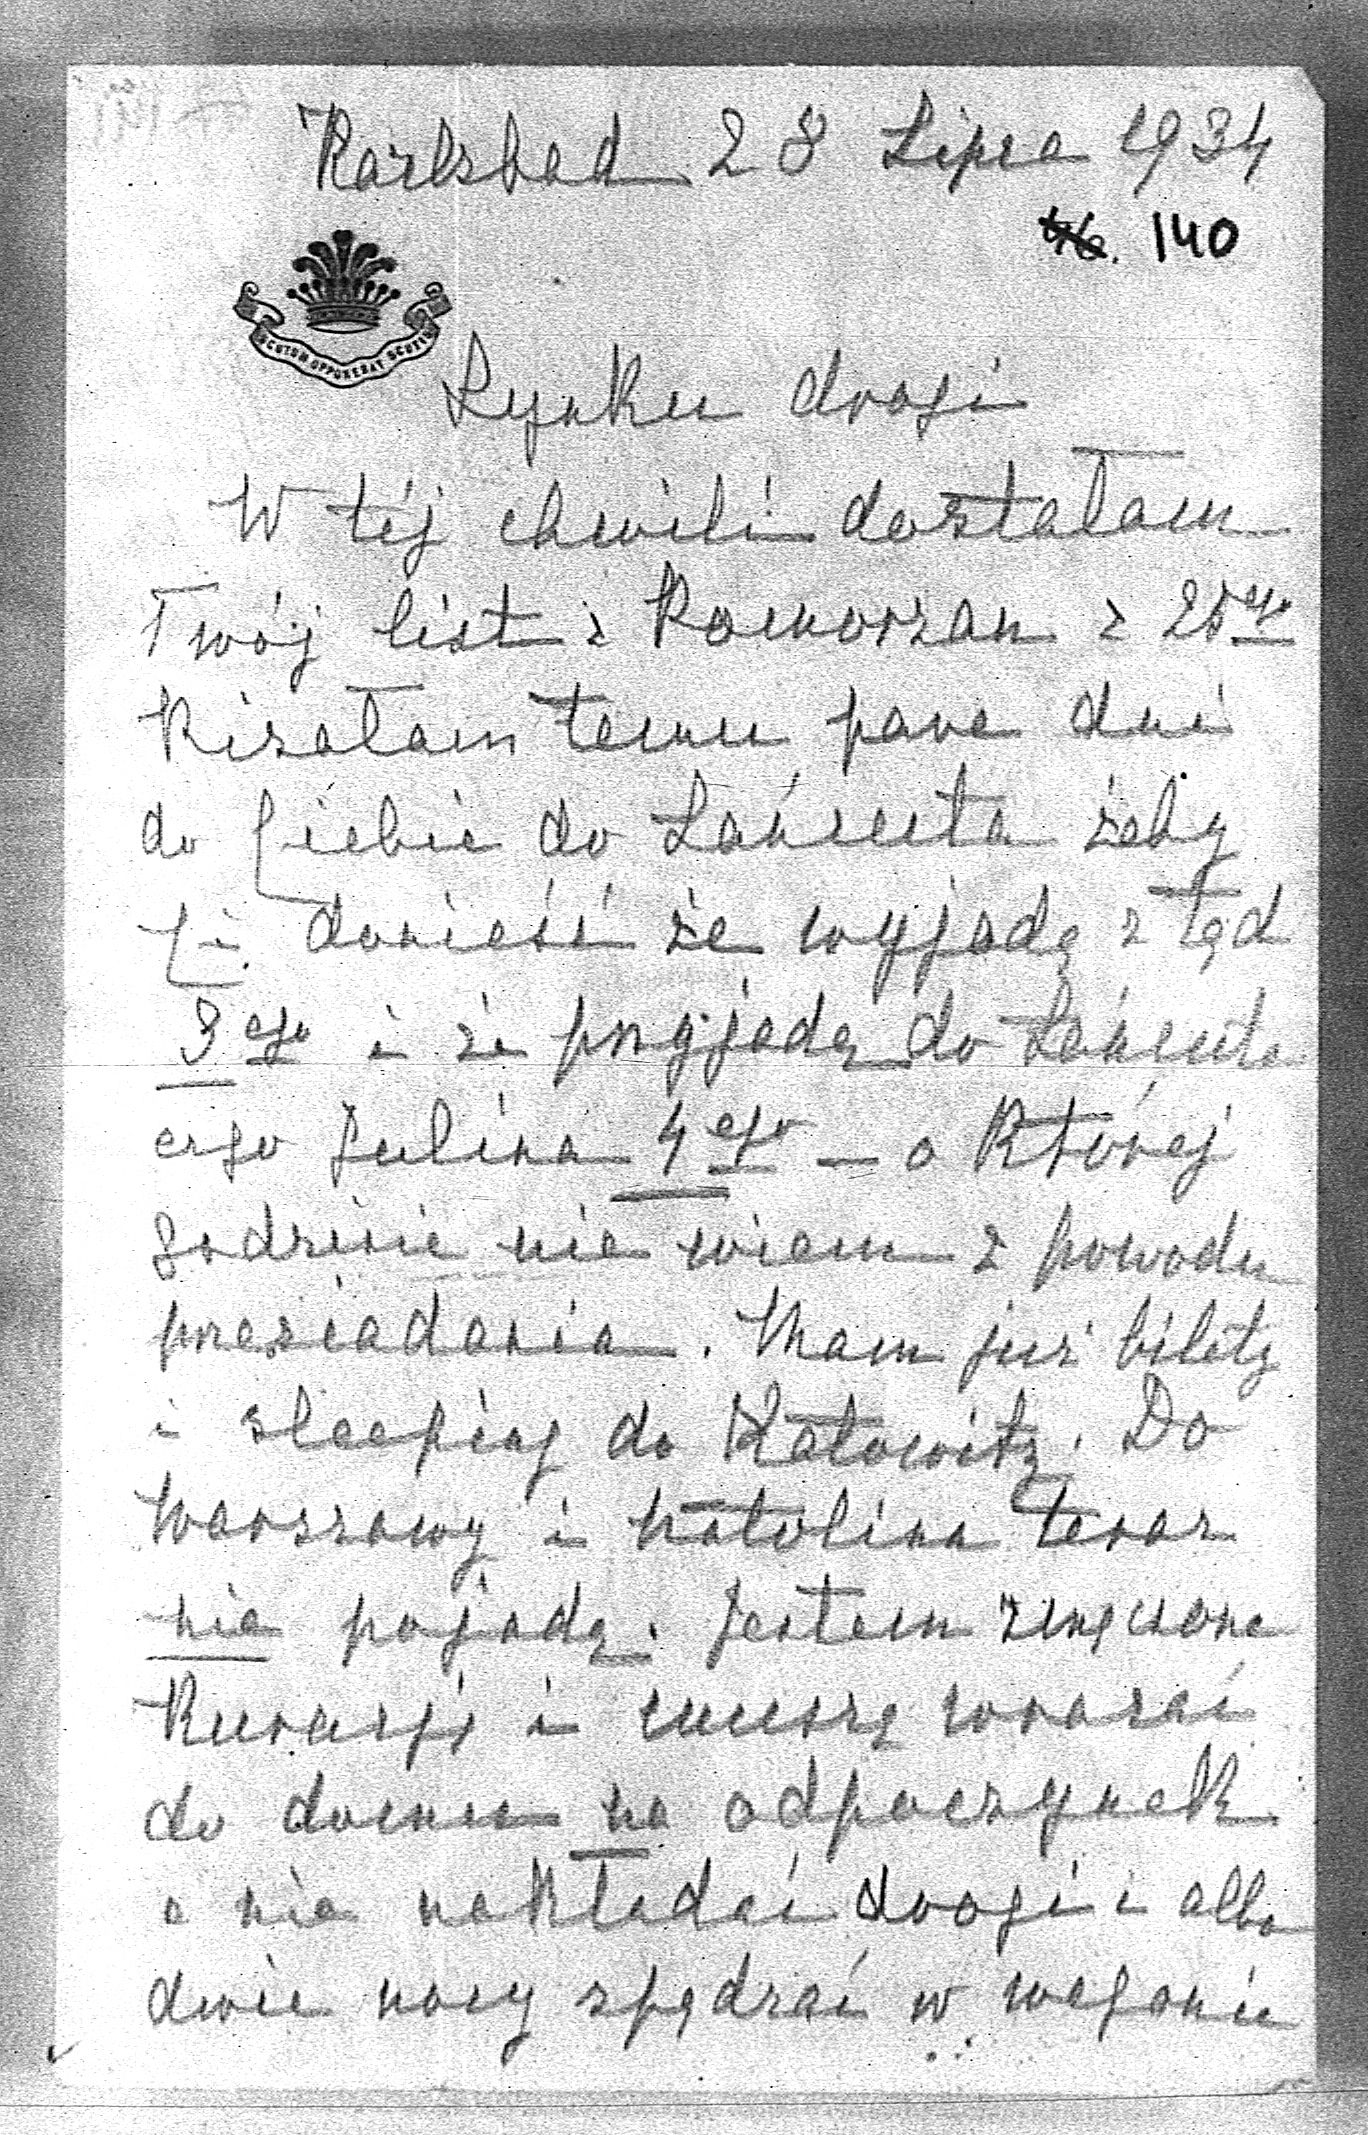 Karlsbad 28 Lipca 1934
140
SCUTUM OPPONEBAT SCUTIS
Synku drogi
W téj chwili dostałam
Twój list z Pomorzan z 25go
Pisałam temu pare dni
do Ciebie do Łańcuta żeby
Ci donieść że wyjadę z tąd
3go i że przyjadę do Łańcuta
ergo Julina 4go — o której
godzinie nie wiem z powodu
przesiadania. Mam już bilety
i sleeping do Katowitz. Do
Warszawy i Natolina teraz
nie pojadę. Jestem zmęczona
Kuracją i muszę wracać
do domu na odpoczynek
a nie nakładać drogi i albo
dwie nocy spędzać w wagonie